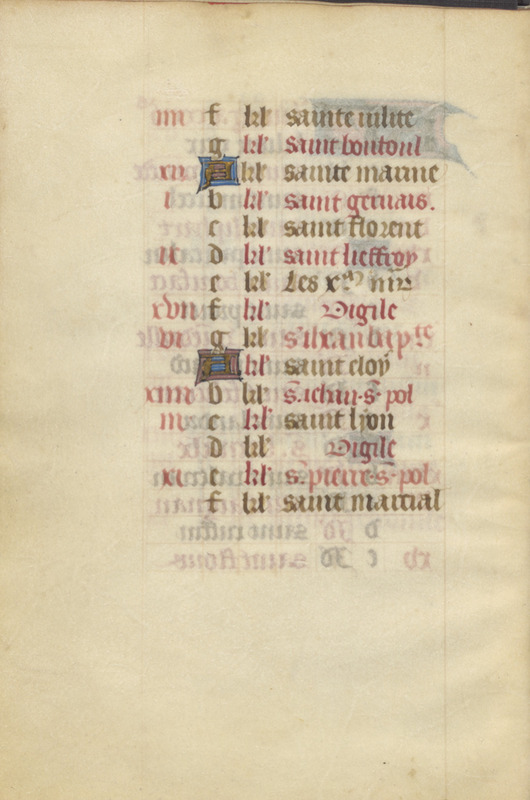 iiii f kl' sainte iulite
g kl' Saint boutoul
xii A kl' sainte marine
i b kl' saint geruais.
c kl' saint florent
ix d kl' saint lieffroy
e kl' Les x.m mr
xvii f kl' Vigile
vi g kl' s' iħan bap.te
A kl' saint eloy
xiiii b kl' s. iehan. s. pol
iii c kl' saint lyon
d kl' Vigile
xi e kl' s. pierre. s. pol
f kl' saint marcial